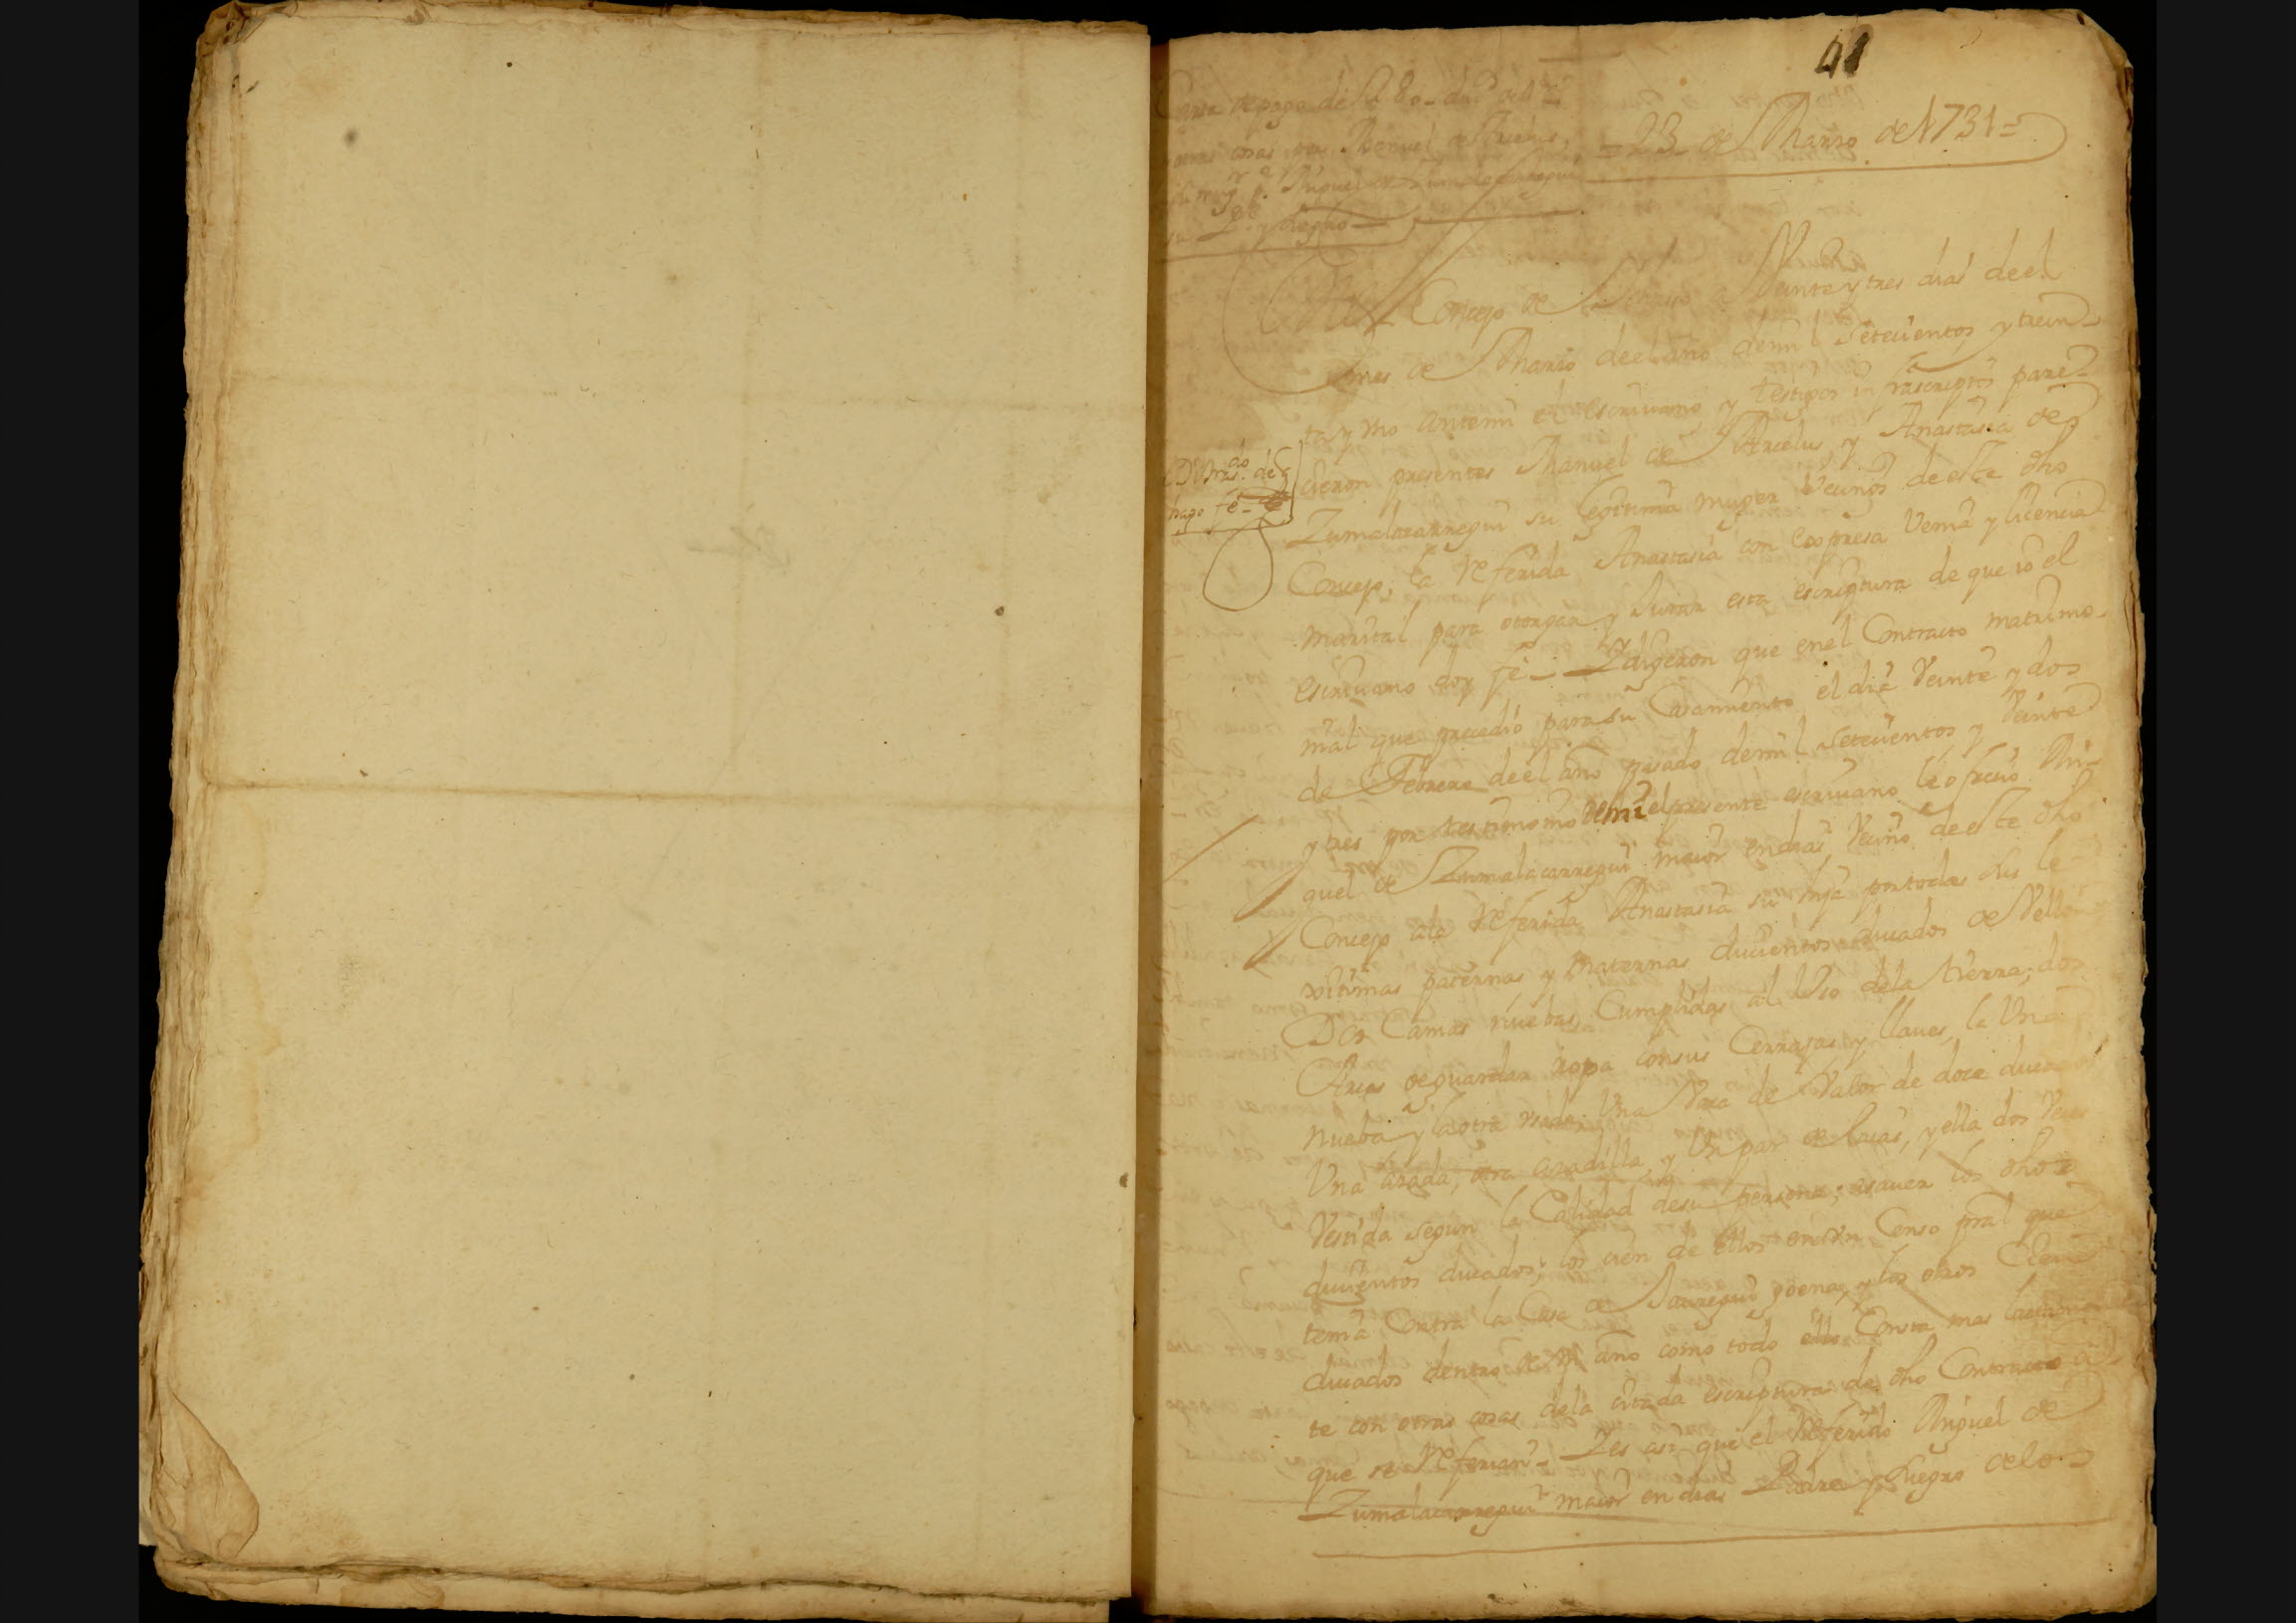 41
Carta de pago de
otras cosas Manuel de Arcelus
su mug.r p.a Miguel de Zumalacarregui
su P.e y suegro
= 23 de Marzo de 1731 =
En el Concejo de a Veinte y tres dias de el
mes de Marzo de el año de mil Setecientos y trein-
ta y uno ante mi el escriuano y testigos infrascriptos pare-
cieron presentes Manuel de Arcelus y Anastasia de
Zumalacarregui su legitima muger Vecinos de este dho
Concejo, la referida Anastasia con expresa Venia y licencia
marital para otorgar y Jurar esta escriptura de que io el
escriuano doy fe = Y digeron que en el Contracto matrimo-
nial que precedio para su Casamiento el dia Veinte y dos
de Febrero de el año pasado de mil Setecientos y Veinte
y tres por testimonio de mi el presente escriuano le ofrecio Mi-
guel de Zumalacarregui maior en dias, Vecino de este dho
Concejo a la referida Anastasia su hija por todas sus le-
xitimas paternas y Maternas ducientos ducados de Vellon
Dos Camas nuebas Cumplidas al Uso de la tierra; dos
Arcas de guardar ropa con sus Cerrajas y llaues, la Una
nueba y la otra usada; Una Vaca de Valor de doce ducados
Una azada, otra azadilla, y Un par de laias, y ella dos Veces
Vestida segun la Calidad de su persona; a sauer los dhos
ducientos ducados, los cien de ellos en Un Censo pral que
tenia Contra la Casa de Jauregui goena, y los otros Cien
ducados dentro de un año como todo ello Consta mas largamen
te con otras cosas de la citada escriptura de dho Contracto a
que se referian = Y es asi que el referido Miguel de
Zumalacarregui maior en dias Padre y suegro de los